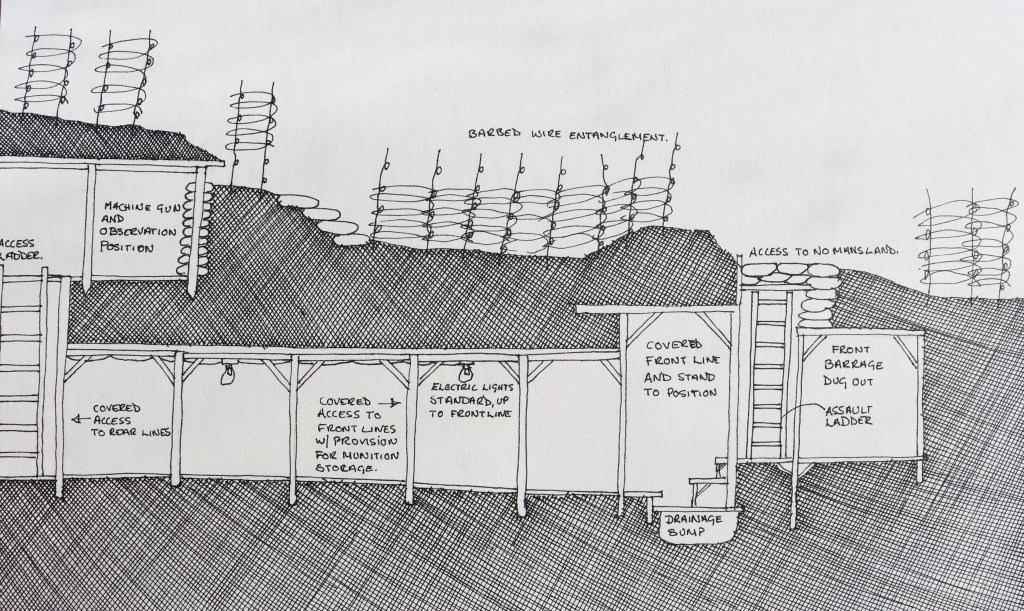 BARBED WIRE ENTANGLEMENT.
MACHINE GUN
AND
OBSERVATION
POSITION
ACCESS
LADDER.
ACCESS TO NO MANSLAND.
COVERED
FRONT LINE
AND STAND
TO POSITION
FRONT
BARRAGE
DUG OUT
ASSAULT
LADDER
COVERED
ACCESS
TO REAR LINES
COVERED
ACCESS TO
FRONT LINES
W/ PROVISION
FOR MUNITION
STORAGE.
ELECTRIC LIGHTS
STANDARD, UP
TO FRONTLINE
DRAINAGE
SUMP